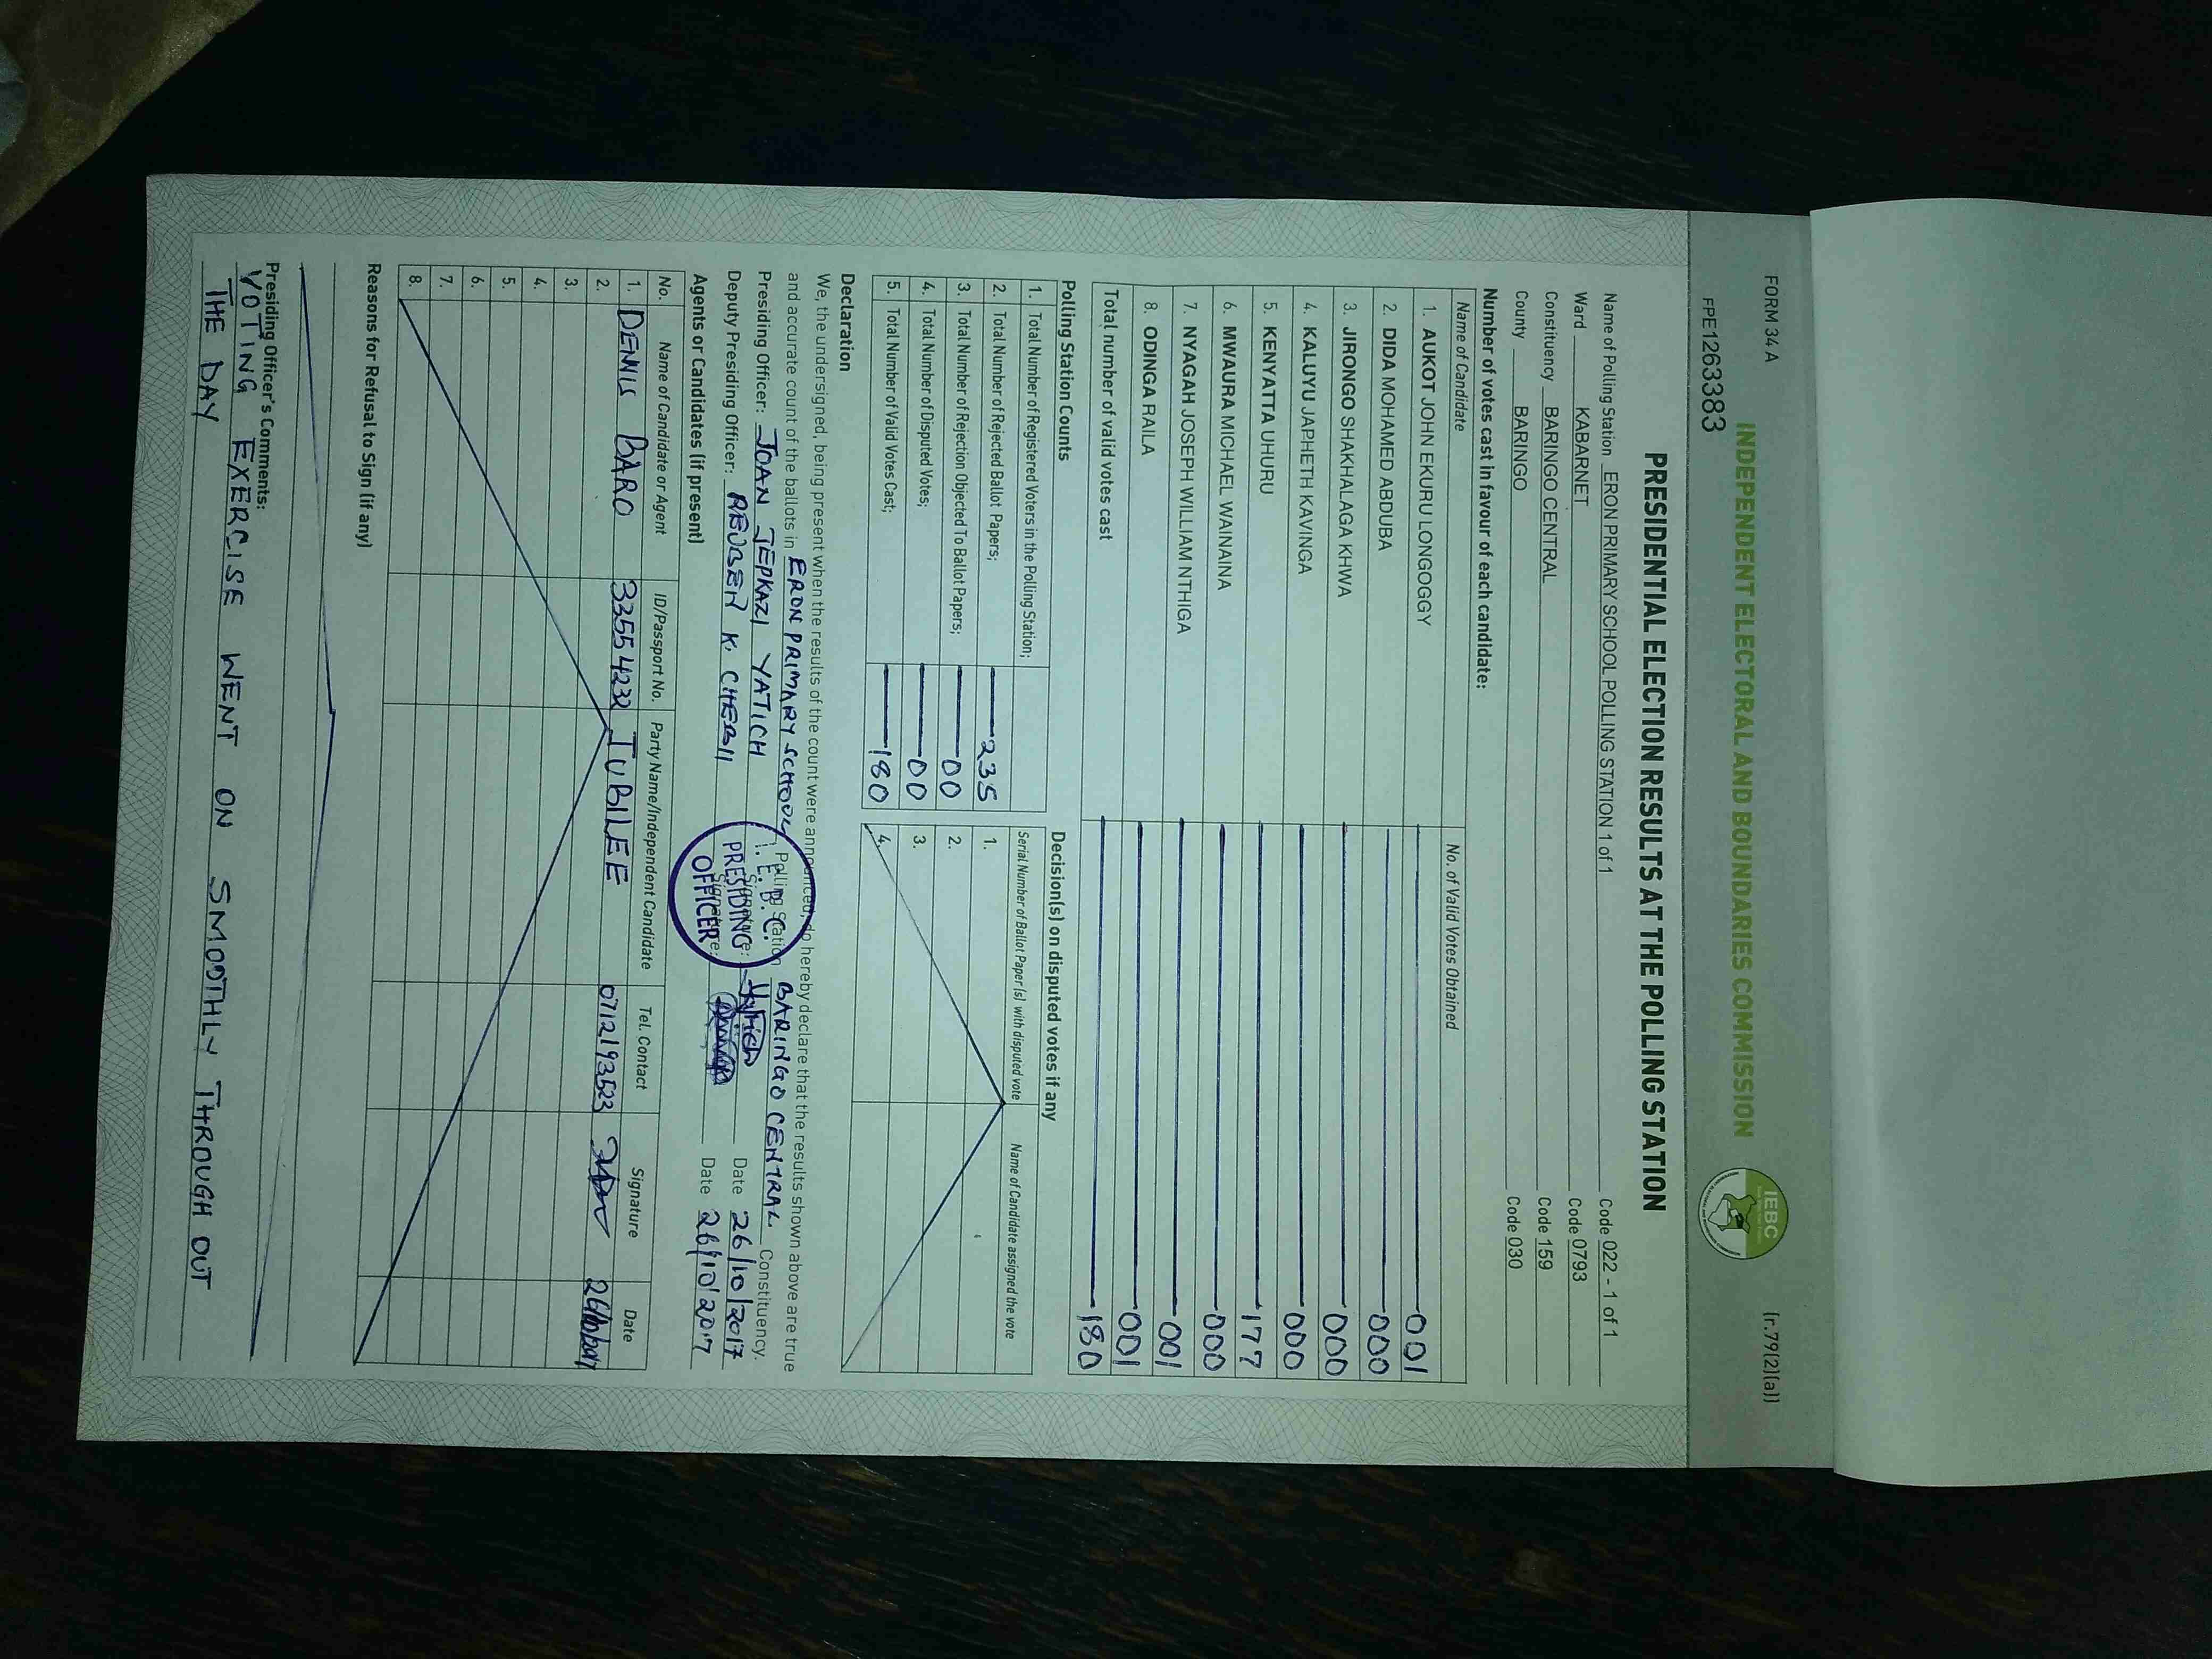 FORM 34 A
(r.79(2)(a))
FPE1263383
INDEPENDENT ELECTORAL AND BOUNDARIES COMMISSION
IEBC
PRESIDENTIAL ELECTION RESULTS AT THE POLLING STATION
Name of Polling Station ERON PRIMARY SCHOOL POLLING STATION 1 of 1 Code 022 - 1 of 1
Ward KABARNET Code 0793
Constituency BARINGO CENTRAL Code 159
County BARINGO Code 030
Number of votes cast in favour of each candidate:
Name of Candidate No. of Valid Votes Obtained
1. AUKOT JOHN EKURU LONGOGGY 001
2. DIDA MOHAMED ABDUBA 000
3. JIRONGO SHAKHALAGA KHWA 000
4. KALUYU JAPHETH KAVINGA 000
5. KENYATTA UHURU 177
6. MWAURA MICHAEL WAINAINA 000
7. NYAGAH JOSEPH WILLIAM NTHIGA 001
8. ODINGA RAILA 001
Total number of valid votes cast 180
Polling Station Counts
1. Total Number of Registered Voters in the Polling Station; 235
2. Total Number of Rejected Ballot Papers; 00
3. Total Number of Rejection Objected To Ballot Papers; 00
4. Total Number of Disputed Votes;
5. Total Number of Valid Votes Cast; 180
Decision(s) on disputed votes if any
Serial Number of Ballot Paper(s) with disputed vote Name of Candidate assigned the vote
1.
2.
3.
4.
Declaration
We, the undersigned, being present when the results of the count were announced, do hereby declare that the results shown above are true
and accurate count of the ballots in ERON PRIMARY SCHOOL Polling Station BARINGO CENTRAL Constituency.
Presiding Officer: JOAN JEPKAZI YATICH Signature: Yatich Date 26/10/2017
Deputy Presiding Officer: REUBEN K. CHEBII Signature: Date 26/10/2017
I.E.B.C.
PRESIDING
OFFICER
Agents or Candidates (if present)
No. Name of Candidate or Agent ID/Passport No. Party Name/Independent Candidate Tel. Contact Signature Date
1. DENIS BARO 33554232 JUBILEE 0712193523 26/10/2017
2.
3.
4.
5.
6.
7.
8.
Reasons for Refusal to Sign (if any)
Presiding Officer's Comments:
VOTING EXERCISE WENT ON SMOOTHLY THROUGH OUT
THE DAY